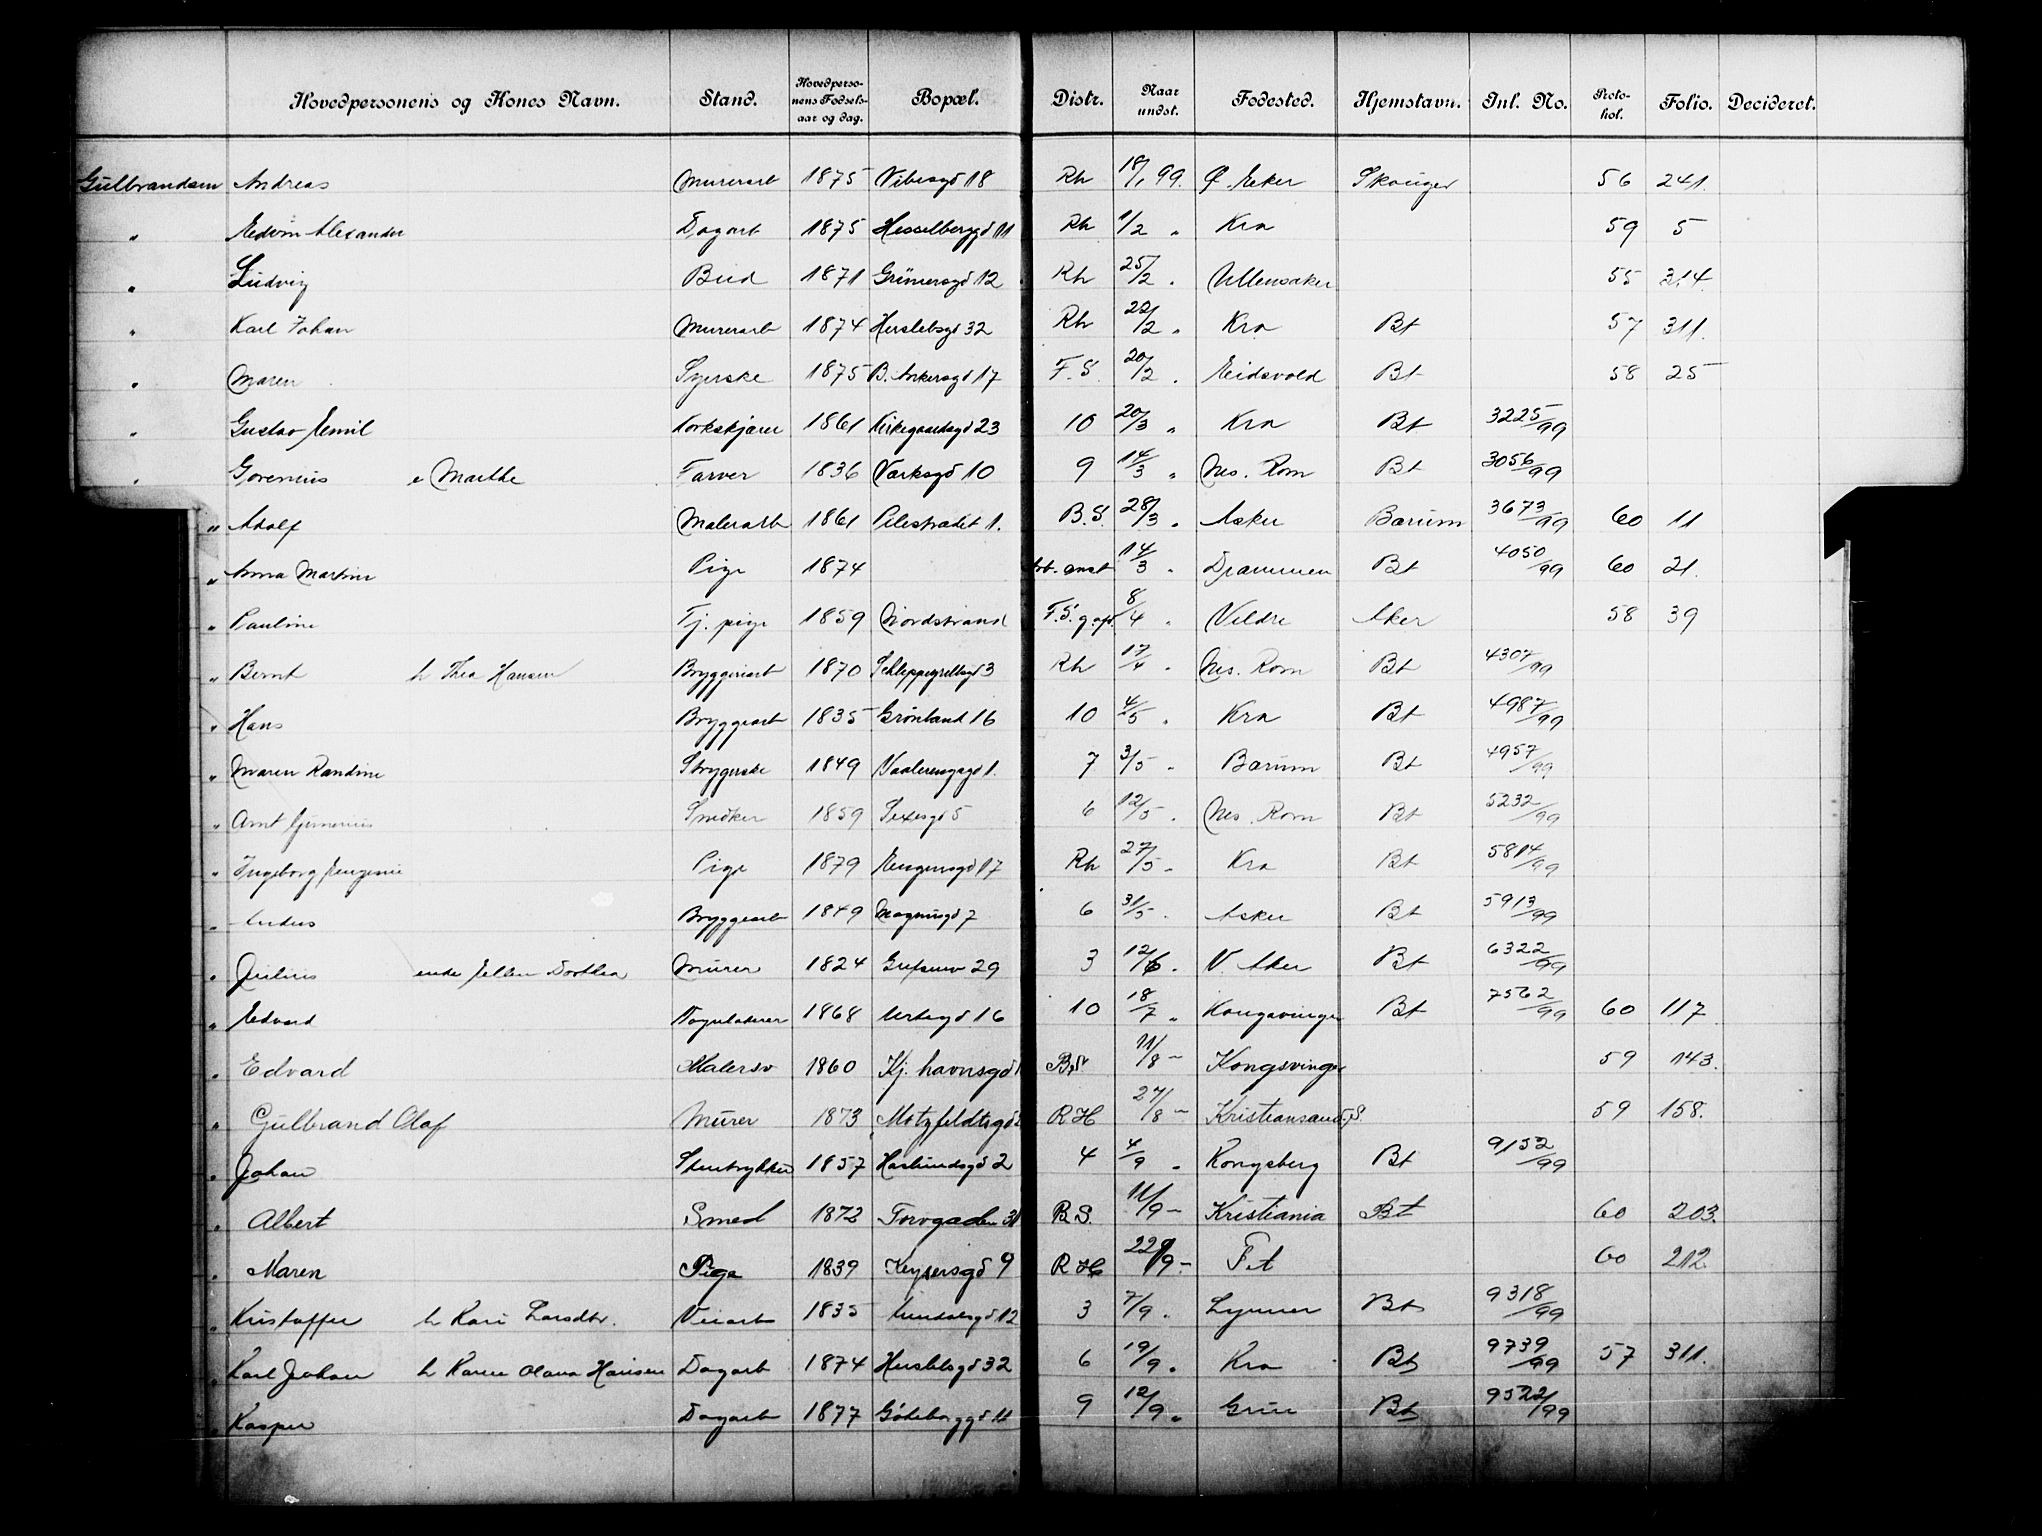 Hovedpersonens og Kones Navn. Stand. Hovedpersonens Fødselsaar og dag. Bopæl. Distr. Naar undst. Fødested. Hjemstavn. Inl. No. Protokol. Folio. Decideret.
Gulbrandsen Andreas Murerarb 1875 Vibesgd 18 Rh 18/1 99. Ø. Eker Skouger 56 241
" Edvin Alexander Dagarb 1875 Hesselberggd 11 Rh 1/2 " Kra 59 5
" Ludvig Bud 1871 Grünersgd 12 Rh 25/2 " Ullensaker 55 314
" Karl Johan Murerarb 1874 Herslebsgd 32 Rh 22/2 " Kra Bt 57 311.
" Maren Syerske 1875 B. Ankersgd 17 F.S. 20/2 " Eidsvold Bt 58 25
" Gustav Emil Korkskjærer 1861 Kirkegaardsgd 23 10 20/3 " Kra Bt 3225/99
" Gorenius e Marthe Farver 1836 Værksgd 10 9 14/3 " Nes. Rom Bt 3056/99
" Adolf Malerarb 1861 Pilestrædet 1. B.S. 28/3 " Asker Bærum 3673/99 60 11
" Anna Martine Pige 1874 Arb. anst 14/3 " Drammen Bt 4050/99 60 21.
" Pauline Tj. pige 1859 Nordstrand F.S. 8/4 " Vildre Aker 58 39
" Bernt h Thea Hansen Bryggeriarb 1870 Schleppegrellsgd 3 Rh 17/4 " Nes. Rom Bt 4307/99
" Hans Bryggearb 1835 Grønland 16 10 4/5 " Kra Bt 4987/99
" Maren Randine Strygerske 1849 Vaalerenggd 1. 7 3/5 " Bærum Bt 4957/99
" Arnt Snedker 1859 Sexesgd 5 6 12/5 " Nes. Rom Bt 5232/99
" Ingeborg Eugenie Pige 1879 Eugeniesgd 17 Rh 27/5 " Kra Bt 5814/99
" Anders Bryggearb 1849 Magnusgd 7 6 31/5 " Asker Bt 5913/99
" Julius enke Ellen Dorthea Murer 1824 Grefsenv 29 3 12/6 " V. Aker Bt 6322/99
" Edvard 1868 Urtegd 16 10 18/7 " Kongsvinger Bt 7562/99 60 117
" Edvard Malersv 1860 Kj. havnsgd 11/8 – Kongsvinger 59 143.
" Gulbrand Olaf Murer 1873 Motzfeldtsgd R H 27/8 – Kristiansand S. 59 158.
" Johan Stentrykker 1857 Haslundsgd 2 4 4/9 " Kongsberg Bt 9152/99
" Albert Smed 1872 Torvgaden 31 B S. 11/9 – Kristiania Bt 60 203.
" Maren Pige 1839 Keysersgd 9 R H 22/9 – Fet 60 212
" Kristoffer h Kari Larsdtr. Veiarb 1835 12 3 7/9 " Lynner Bt 9318/99
" Karl Johan h Karen Olava Hansen Dagarb 1874 Herslebsgd 32 6 19/9 " Kra Bt 9739/99 57 311.
" Kasper Dagarb 1877 Göteborggd 11 9 12/9 " Grue Bt 9522/99